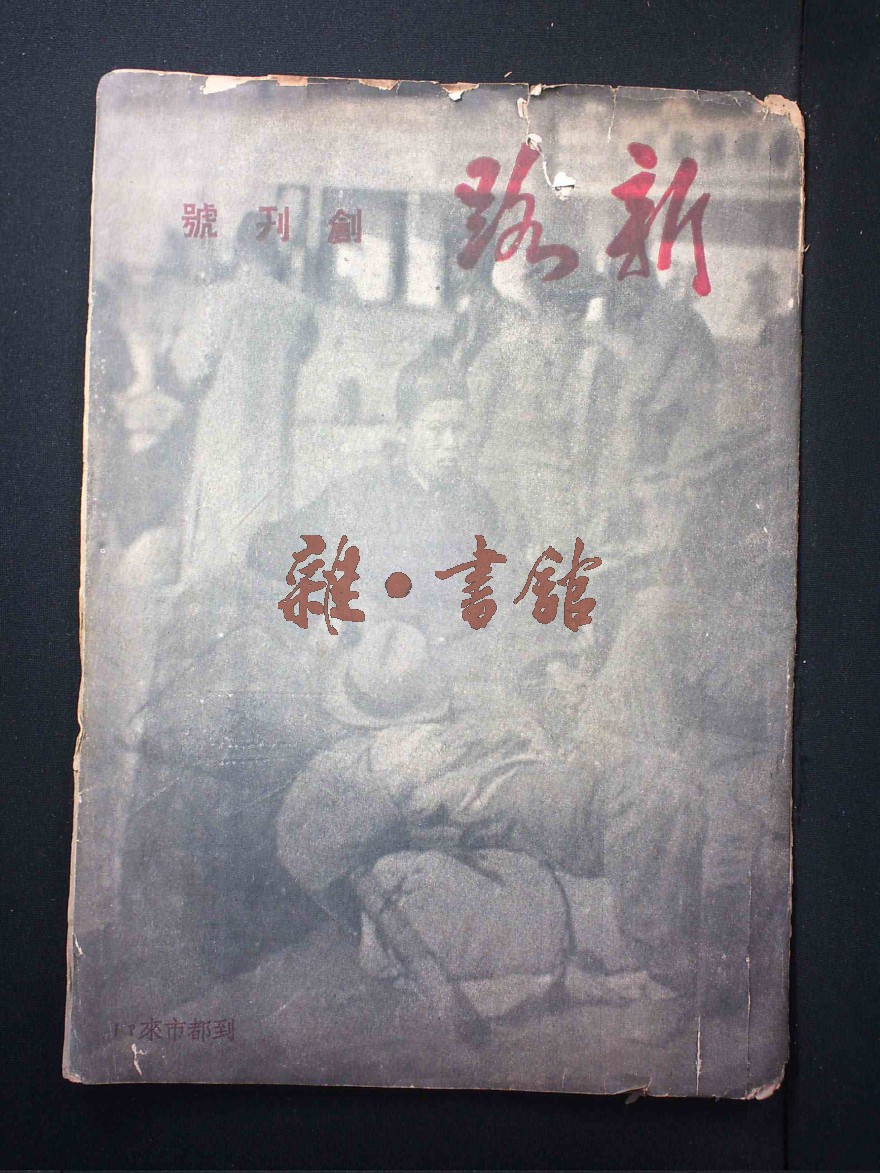 新路
創刊號
雜·書館
到都市來!?